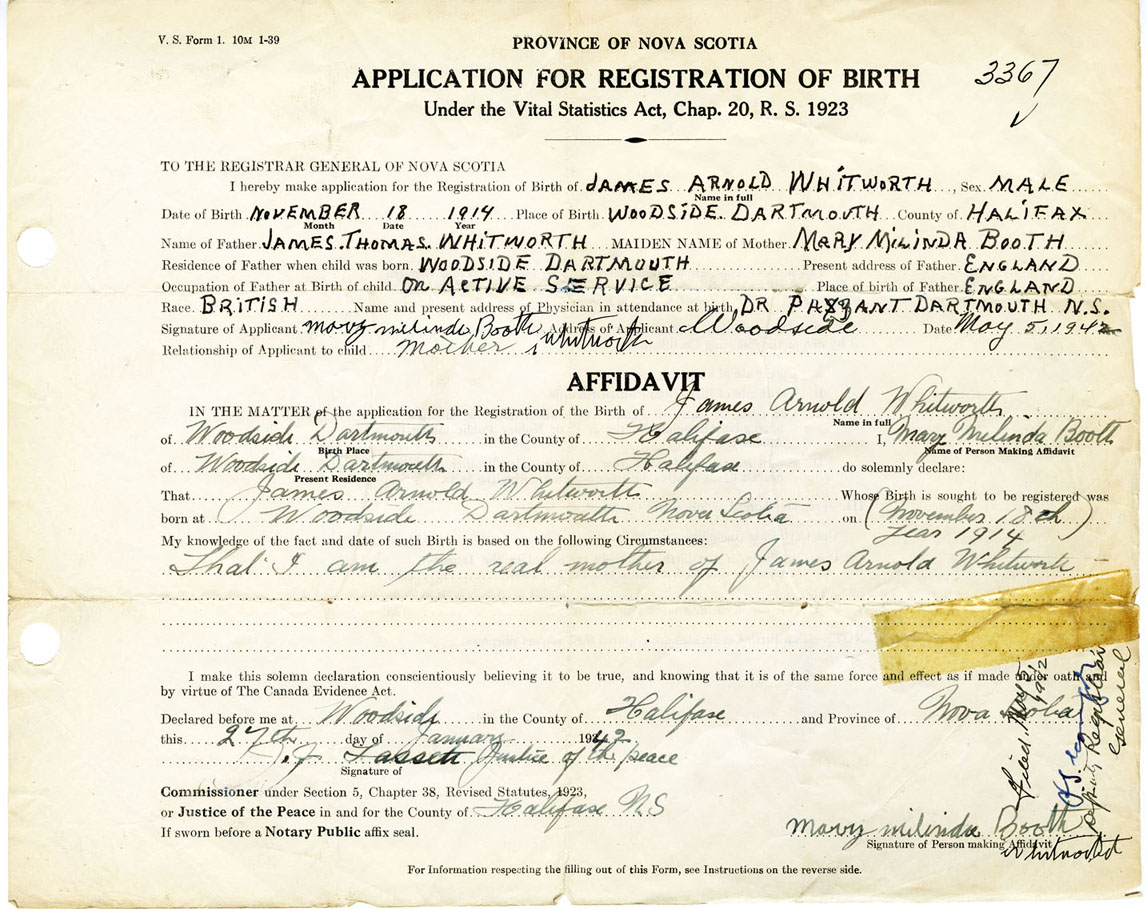 V. S. Form 1. 10M 1-39
PROVINCE OF NOVA SCOTIA
APPLICATION FOR REGISTRATION OF BIRTH
3367
Under the Vital Statistics Act, Chap. 20, R. S. 1923
TO THE REGISTRAR GENERAL OF NOVA SCOTIA
I hereby make application for the Registration of Birth of JAMES ARNOLD WHITWORTH, Sex MALE
Name in full
Date of Birth NOVEMBER 18 1914 Place of Birth WOODSIDE DARTMOUTH County of HALIFAX
Month Date Year
Name of Father JAMES THOMAS WHITWORTH MAIDEN NAME of Mother MARY MILINDA BOOTH
Residence of Father when child was born WOODSIDE DARTMOUTH Present address of Father ENGLAND
Occupation of Father at Birth of child ON ACTIVE SERVICE Place of Birth of Father ENGLAND
Race BRITISH Name and present address of Physician in attendance at birth DR DARTMOUTH N.S.
Signature of Applicant mary milinda Booth Whitworth Address of Applicant Woodside Date May 5, 1942
Relationship of Applicant to child mother
AFFIDAVIT
IN THE MATTER of the application for the Registration of the Birth of James Arnold Whitworth
Name in full
of Woodside Dartmouth in the County of Halifax I, Mary Milinda Booth
Birth Place Name of Person Making Affidavit
of Woodside Dartmouth in the County of Halifax do solemnly declare:
Present Residence
That James Arnold Whitworth Whose Birth is sought to be registered was
born at Woodside Dartmouth Nova Scotia on (November 18th)
year 1914
My knowledge of the fact and date of such Birth is based on the following Circumstances:
That I am the real mother of James Arnold Whitworth
I make this solemn declaration conscientiously believing it to be true, and knowing that it is of the same force and effect as if made under oath and
by virtue of The Canada Evidence Act.
Declared before me at Woodside in the County of Halifax and Province of Nova Scotia
this 27th day of January 1942
Justice of the peace
Signature of
Commissioner under Section 5, Chapter 38, Revised Statutes, 1923,
or Justice of the Peace in and for the County of Halifax N S
If sworn before a Notary Public affix seal.
mary milinda Booth
Signature of Person making Affidavit
Whitworth
Filed May 5 1942
Deputy Registrar General
For Information respecting the filling out of this Form, see Instructions on the reverse side.